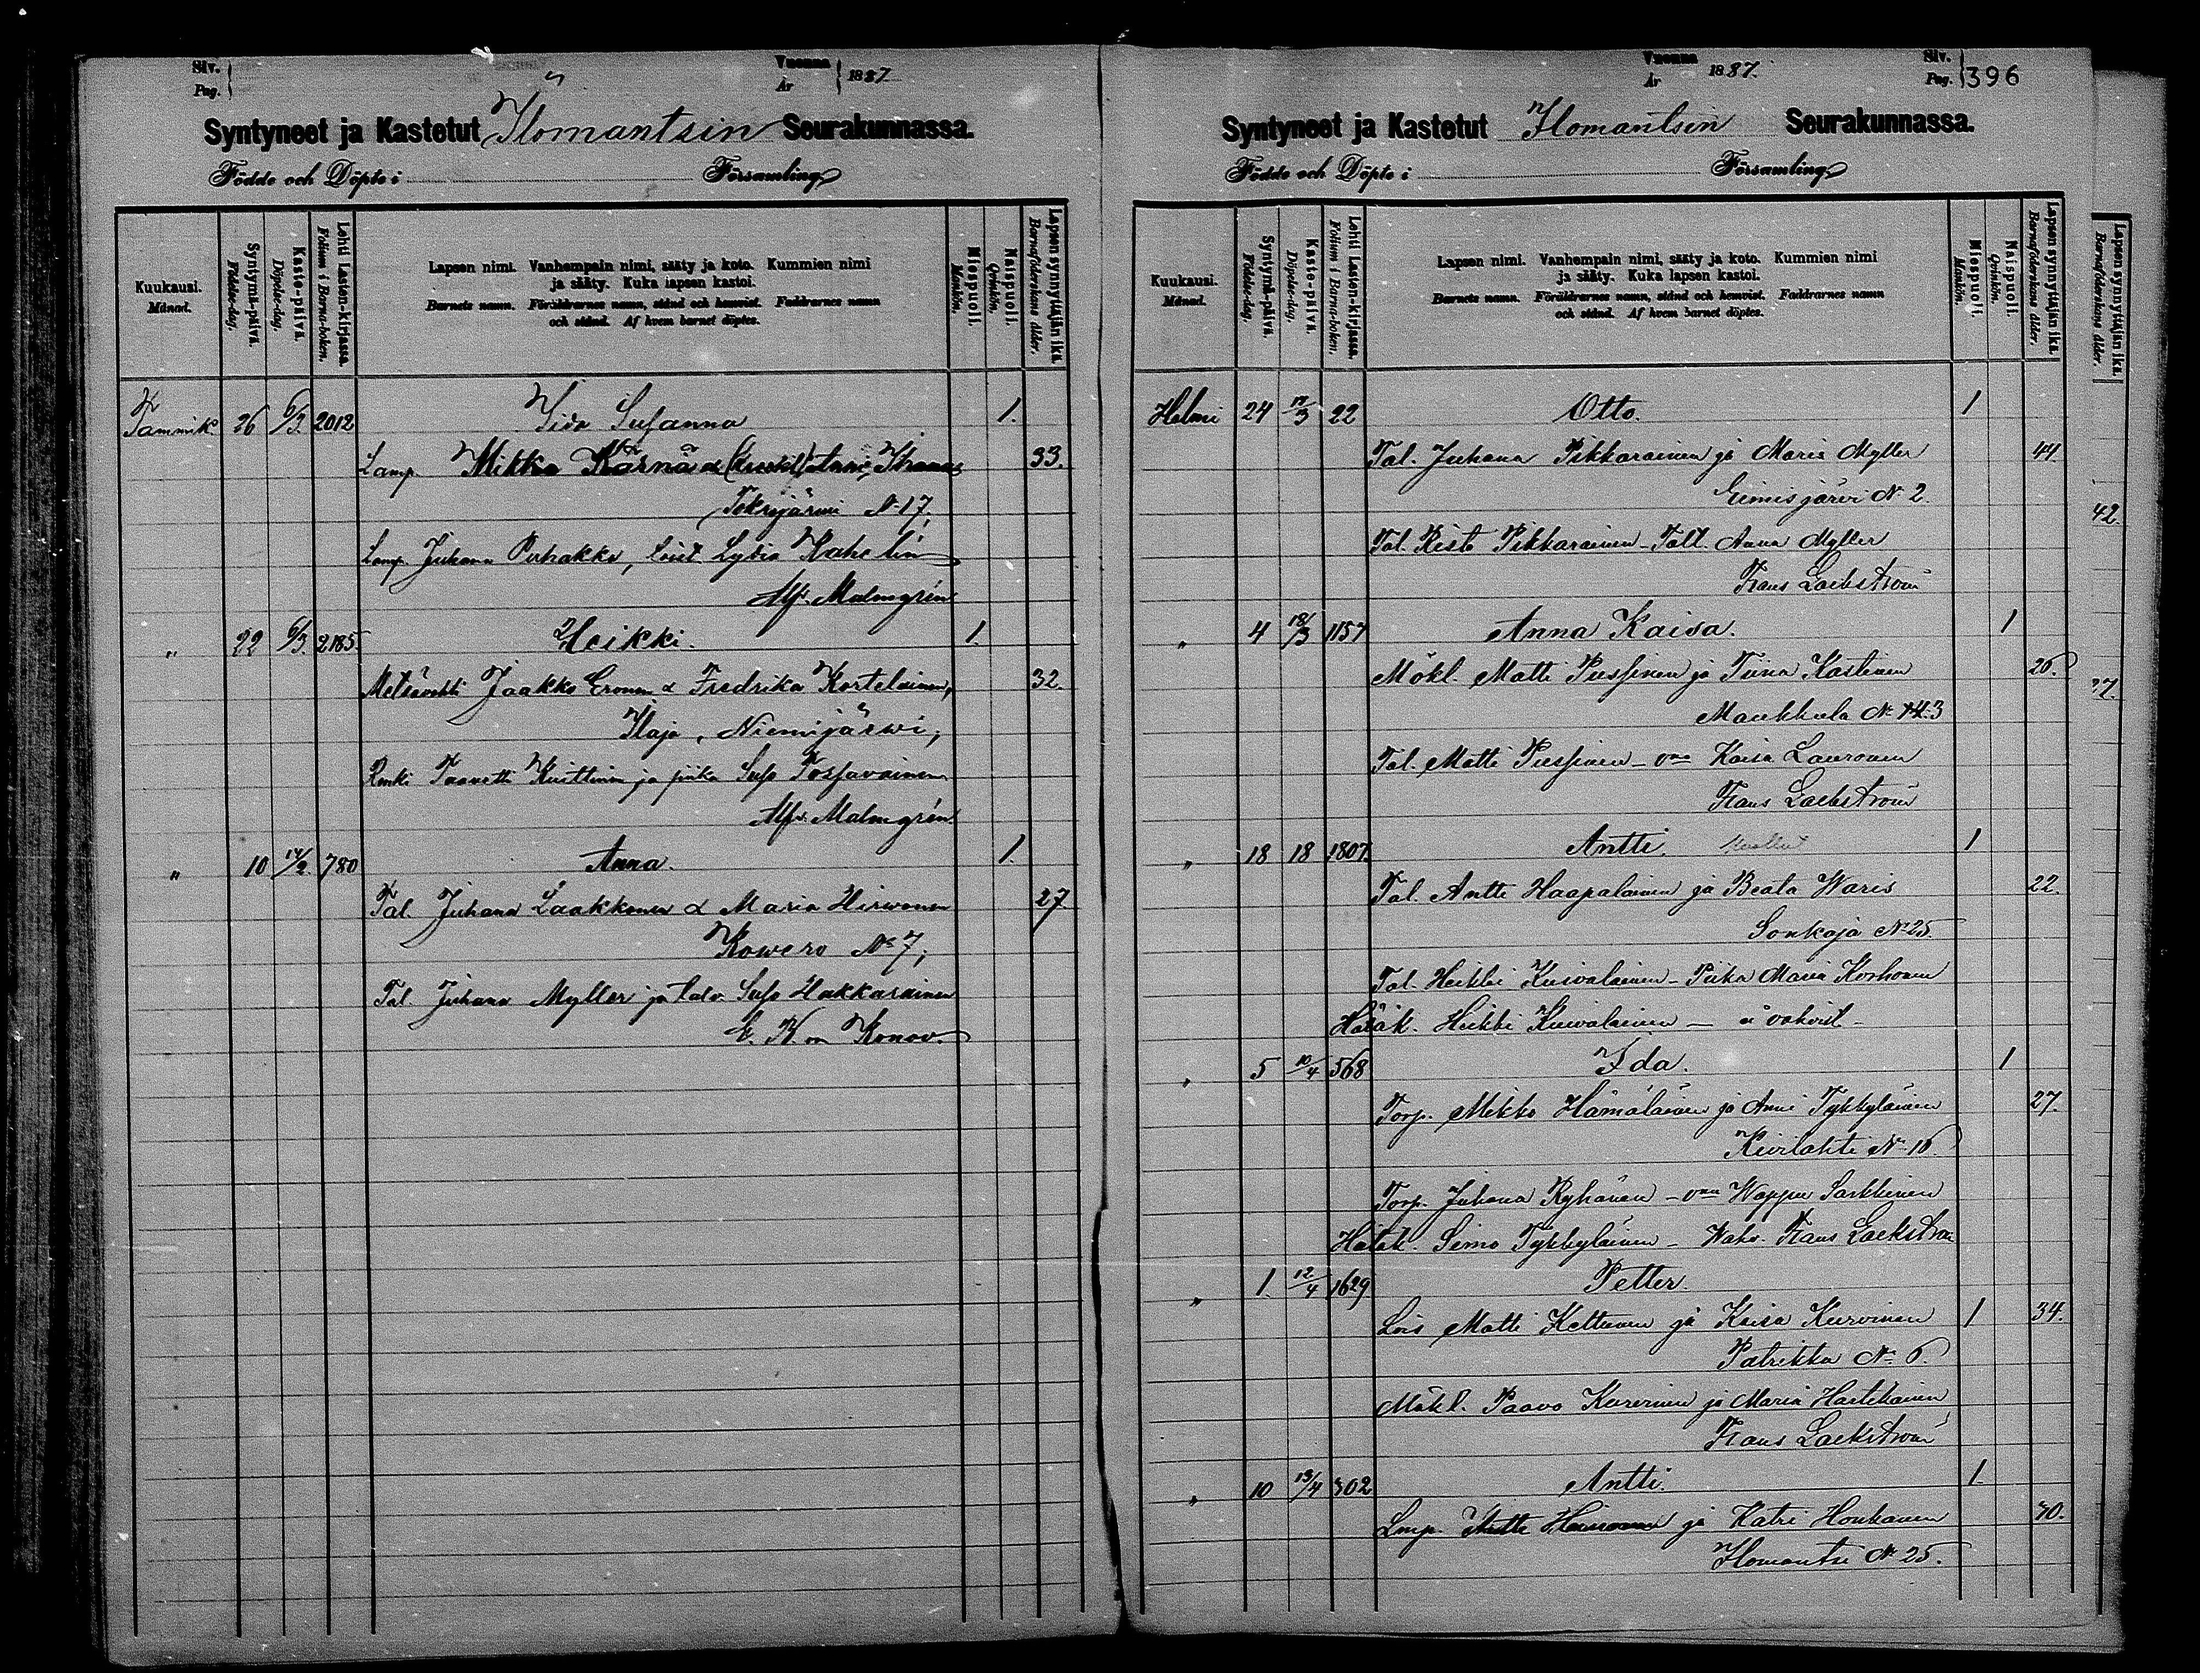 Siv.
Pag.
Vuonna
År
1887
Syntyneet ja Kastetut Ilomantsin Seurakunnassa.
Födde och Döpte i Församling
Kuukausi.
Månad.
Syntymä-päivä.
Födelse-dag.
Kaste-päivä.
Döpelse-dag.
Lehti Lasten-kirjassa.
Folium i Barna-boken.
Lapsen nimi. Vanhempain nimi, sääty ja koto. Kummien nimi
ja sääty. Kuka lapsen kastoi.
Barnets namn. Föräldrarnes namn, stånd och hemvist. Faddrarnes namn
och stånd. Af hvem barnet döptes.
Miespuoli.
Mankön.
Naispuoli.
Qvinkön.
Lapsen synnyttäjän ikä.
Barnaföderskans ålder.
Tammik. 26 6/3 2012 Iida Susanna 1.
Lamp. Mikko Kärnä & Anni 33.
Tokrajärvi N 17,
Lamp. Juhana Puhakka, Lydia
Alfr. Malmgrén
" 22 6/3. 2185 Heikki. 1.
Metsävahti Jaakko Eronen & Fredrika Kortelainen, 32.
Ilaja, Niemijärwi,
Renki Taavetti Kuittinen ja piika Susa Tossavainen
Alfr. Malmgrén
" 10 14/2. 780 Anna. 1.
Tal. Juhana Laakkonen & Maria Hirwonen 27
Kowero No 7,
Tal. Juhana Myller ja talv. Susa Hakkarainen
Konov.
Vuonna
År
1887.
Siv.
Pag.
396
Syntyneet ja Kastetut Ilomantsin Seurakunnassa.
Födde och Döpte i Församling
Kuukausi.
Månad.
Syntymä-päivä.
Födelse-dag.
Kaste-päivä.
Döpelse-dag.
Lehti Lasten-kirjassa.
Folium i Barna-boken.
Lapsen nimi. Vanhempain nimi, sääty ja koto. Kummien nimi
ja sääty. Kuka lapsen kastoi.
Barnets namn. Föräldrarnes namn, stånd och hemvist. Faddrarnes namn
och stånd. Af hvem barnet döptes.
Miespuoli.
Mankön.
Naispuoli.
Qvinkön.
Lapsen synnyttäjän ikä.
Barnaföderskans ålder.
Helmi 24 17/3 22 Otto. 1
Tal. Juhana Pikkarainen ja Maria Myller 44
Eimisjärvi No 2.
Tal. Risto Pikkarainen - Talt. Anna Myller
Frans Laekström
" 4 18/3 1157 Anna Kaisa. 1
Mökl. Matti Pussinen ja Tiina Kastinen 26.
Maukkula No 3
Tal. Matti Pussinen - vmo Kaisa Lauronen
Frans Laekström
" 18 18 1807 Antti. kuollut 1
Tal. Antti Haapalainen ja Beata Waris 22.
Sonkaja No 25.
Tal. Heikki Kuivalainen - Piika Maria Korhonen
Hätäk. Heikki Kuivalainen - ei vahvist -
" 5 10/4 568 Ida. 1
Torp. Mikko Hämäläinen ja Anni Tykkyläinen 27.
Kuvilahti No 16.
Torp. Juhana Ryhänen - vmo Wappu Sarkkinen
Hätäk. Simo Tykkyläinen - Wahv. Frans Laekström
" 1. 12/4 1629 Petter.
Lois Matti Kettunen ja Kaisa Kurvinen 1 34.
Patrikka No 6.
Mökl. Paavo Kurvinen ja Maria Hartikainen
Frans Laekström
" 10 13/4 302 Antti. 1.
Lmp. ja Katri Honkanen 30.
Ilomantsi No 25.
Lapsen synnyttäjän ikä.
Barnaföderskans ålder.
42.
27.